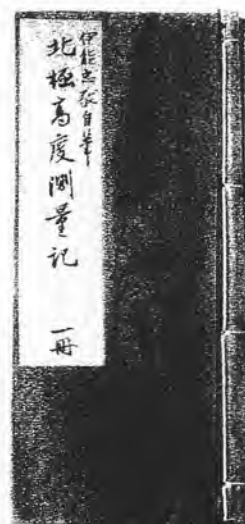 伊能忠敬自筆
北極高度測量記 一冊